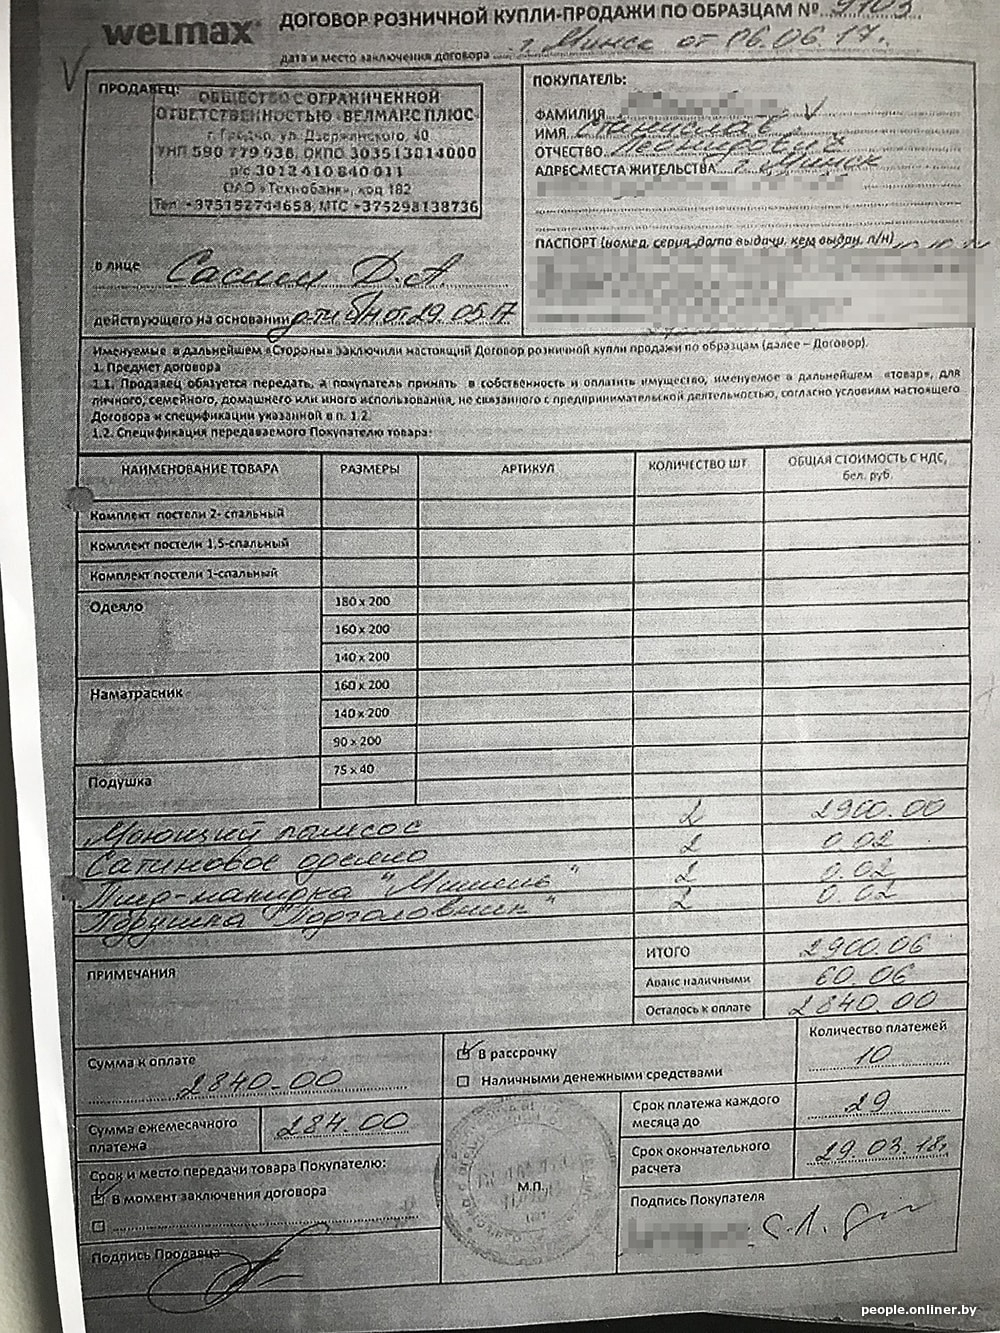 welmax
ДОГОВОР РОЗНИЧНОЙ КУПЛИ-ПРОДАЖИ ПО ОБРАЗЦАМ № 9103
дата и место заключения договора г. Минск от 06.06.17г.
ПРОДАВЕЦ:
ОБЩЕСТВО С ОГРАНИЧЕННОЙ
ОТВЕТСТВЕННОСТЬЮ «ВЕЛМАКС ПЛЮС»
г. Гродно, ул. Дзержинского, 40
УНП 590 779 936, ОКПО 303513814000
р/с 3012 410 840 011
ОАО «Технобанк», код 182
Тел. +375152744658, МТС +375298138736
в лице Сасин Д.А.
действующего на основании от 29.05.17
ПОКУПАТЕЛЬ:
ФАМИЛИЯ
ИМЯ Станислав
ОТЧЕСТВО Леонидович
АДРЕС МЕСТА ЖИТЕЛЬСТВА г. Минск
ПАСПОРТ (номер, серия, дата выдачи, кем выдан, л/н)
Именуемые в дальнейшем «Стороны» заключили настоящий Договор розничной купли продажи по образцам (далее – Договор).
1. Предмет договора
1.1. Продавец обязуется передать, а покупатель принять в собственность и оплатить имущество, именуемое в дальнейшем «товар», для
личного, семейного, домашнего или иного использования, не связанного с предпринимательской деятельностью, согласно условиям настоящего
Договора и спецификации указанной в п. 1.2
1.2. Спецификация передаваемого Покупателю товара:
НАИМЕНОВАНИЕ ТОВАРА РАЗМЕРЫ АРТИКУЛ КОЛИЧЕСТВО ШТ ОБЩАЯ СТОИМОСТЬ С НДС,
бел. руб.
Комплект постели 2- спальный
Комплект постели 1,5-спальный
Комплект постели 1-спальный
Одеяло 180 x 200
160 x 200
140 x 200
Наматрасник 160 x 200
140 x 200
90 x 200
Подушка 75 x 40
Моющий пылесос 2 2900.00
Сатиновое одеяло 2 0.02
2 0.02
Подушка "Подголовник" 2 0.02
ИТОГО 2900.06
ПРИМЕЧАНИЯ
Аванс наличными 60.06
Осталось к оплате 2840.00
Сумма к оплате
2840-00
В рассрочку
Наличными денежными средствами
Количество платежей
10
Сумма ежемесячного
платежа 284.00
Срок платежа каждого
месяца до 29
Срок окончательного
расчета 29.03.18г.
Срок и место передачи товара Покупателю:
В момент заключения договора
М.П.
Подпись Продавца
Подпись Покупателя
people.onliner.by